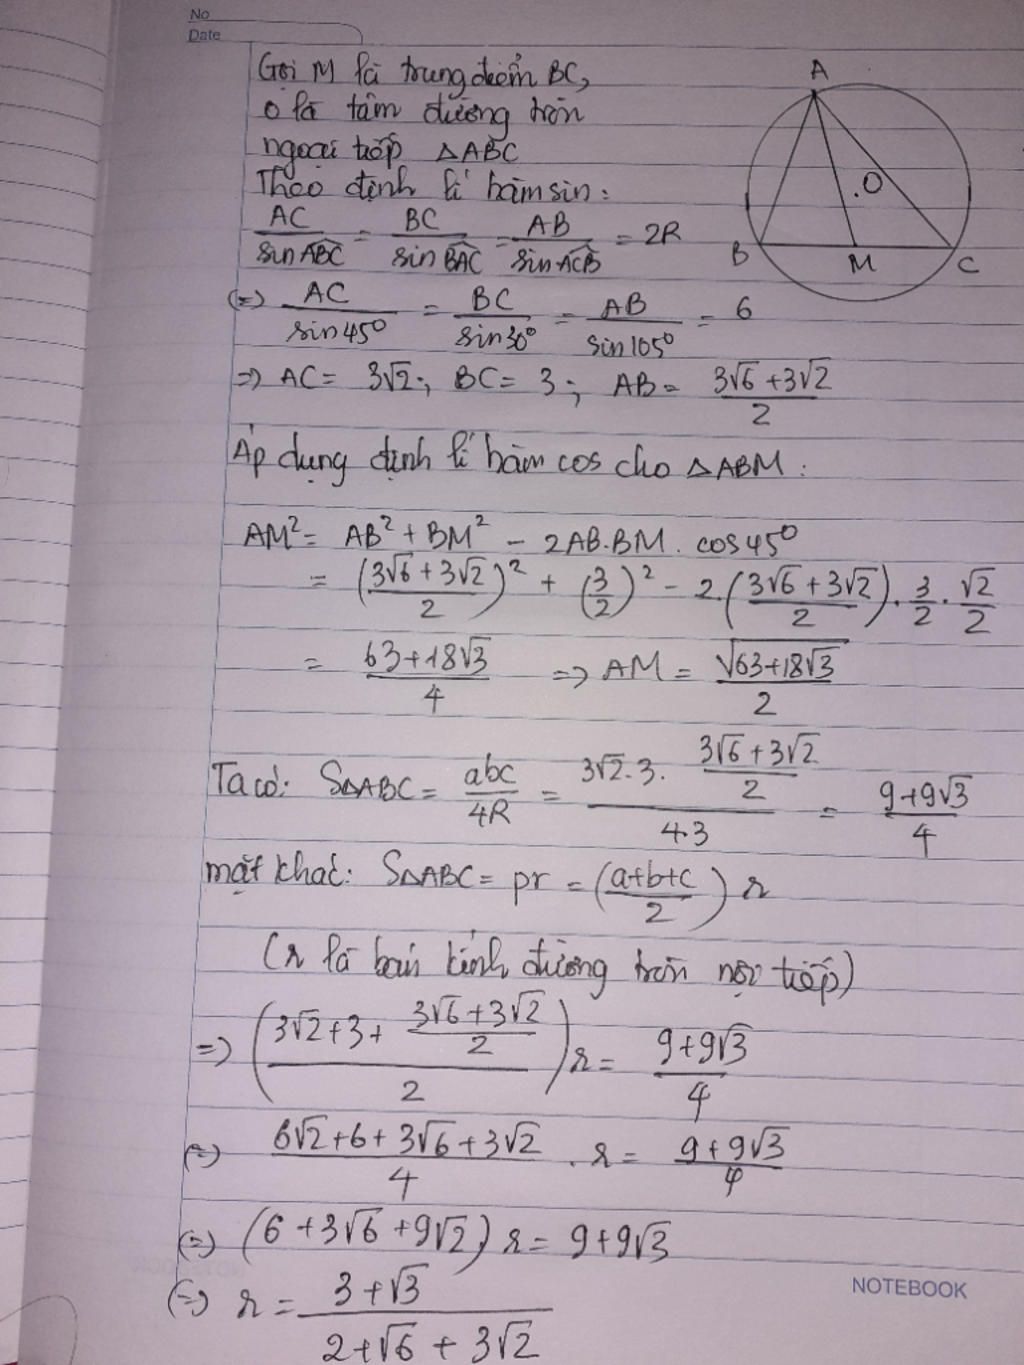 No
Date
Gọi M là trung điểm BC,
O là tâm đường tròn
ngoại tiếp △ABC
Theo định lí hàm sin:
AC/sin ABC = BC/sin BAC = AB/sin ACB = 2R
(=) AC/sin45° = BC/sin30° = AB/sin105° = 6
=> AC = 3√2; BC = 3; AB = (3√6+3√2)/2
Áp dụng định lí hàm cos cho △ABM:
AM² = AB² + BM² - 2AB.BM. cos45°
= ((3√6+3√2)/2)² + (3/2)² - 2.((3√6+3√2)/2).3/2.√2/2
= (63+18√3)/4 => AM = √(63+18√3)/2
Ta có: S△ABC = abc/4R = (3√2.3.(3√6+3√2)/2)/4.3 = (9+9√3)/4
mặt khác: S△ABC = pr = ((a+b+c)/2) r
(r là bán kính đường tròn nội tiếp)
=> ((3√2+3+(3√6+3√2)/2)/2) r = (9+9√3)/4
(=) (6√2+6+3√6+3√2)/4 . r = (9+9√3)/4
(=) (6+3√6+9√2) r = 9+9√3
(=) r = (3+√3)/(2+√6+3√2)
A
O
B
M
C
NOTEBOOK